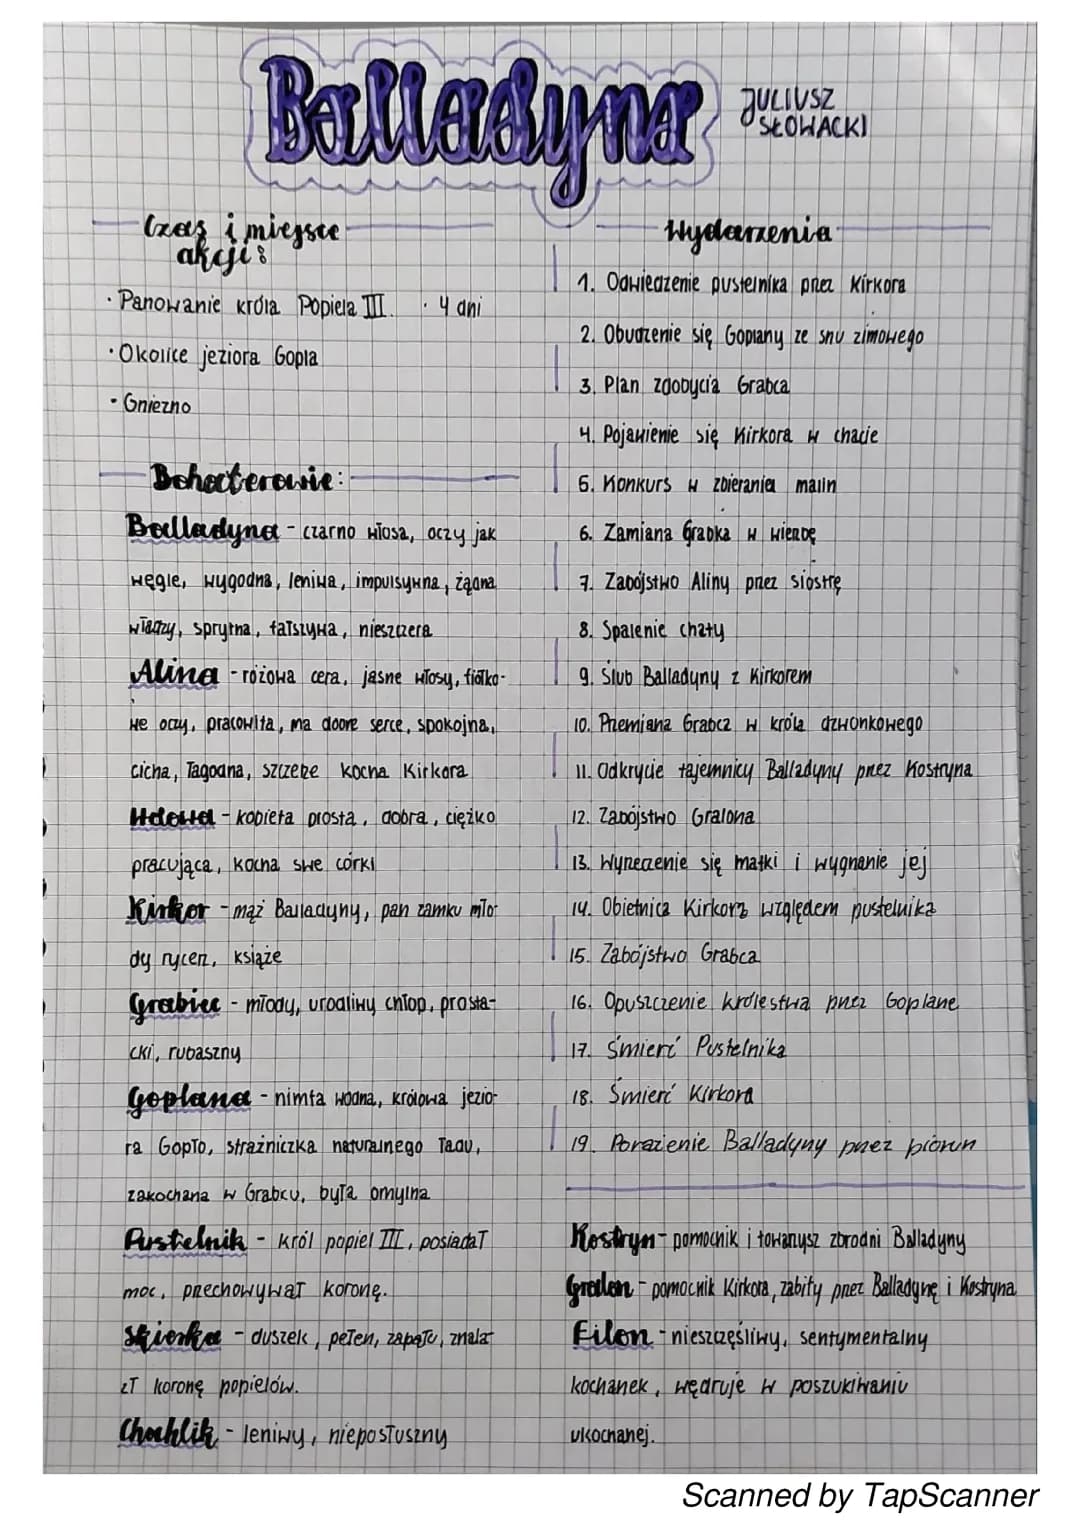 Balladyna
JULIUSZ
SŁOWACKI
Czas i miejsce
akcji:
· Panowanie króla Popiela III. · 4 dni
· Okolice jeziora Gopla
· Gniezno
Bohaterowie:
Balladyna - czarno włosa, oczy jak
węgle, wygodna, leniwa, impulsywna, żądna
władzy, sprytna, fałszywa, nieszczera
Alina - różowa cera, jasne włosy, fiołko-
we oczy, pracowita, ma dobre serce, spokojna,
cicha, łagodna, szczerze kocha Kirkora
Wdowa - kobieta prosta, dobra, ciężko
pracująca, kocha swe córki
Kirkor - mąż Balladyny, pan zamku mło-
dy rycerz, książe
Grabiec - młody, urodliwy chłop, prosta-
cki, rubaszny
Goplana - nimfa wodna, królowa jezio-
ra Gopło, strażniczka naturalnego ładu,
zakochana w Grabcu, była omylna
Pustelnik - król popiel III, posiadał
moc, przechowywał koronę.
Skierka - duszek, pełen, zapału, znala-
zł koronę popielów.
Chochlik - leniwy, nieposłuszny
Wydarzenia
1. Odwiedzenie pustelnika przez Kirkora
2. Obudzenie się Goplany ze snu zimowego
3. Plan zdobycia Grabca
4. Pojawienie się Kirkora w chacie
5. Konkurs w zbierania malin
6. Zamiana Grabka w wierzbę
7. Zabójstwo Aliny przez siostrę
8. Spalenie chaty
9. Ślub Balladyny z Kirkorem
10. Przemiana Grabcz w króla dzwonkowego
11. Odkrycie tajemnicy Balladyny przez Kostryna
12. Zabójstwo Gralona
13. Wyrzeczenie się matki i wygnanie jej
14. Obietnica Kirkora względem pustelnika
15. Zabójstwo Grabca
16. Opuszczenie królestwa przez Goplane
17. Śmierć Pustelnika
18. Śmierć Kirkora
19. Porażenie Balladyny przez piorun
Kostryn - pomocnik i towarzysz zbrodni Balladyny
Gralon - pomocnik Kirkora, zabity przez Balladynę i Kostryna
Filon - nieszczęśliwy, sentymentalny
kochanek, wędruje w poszukiwaniu
ukochanej.
Scanned by TapScanner